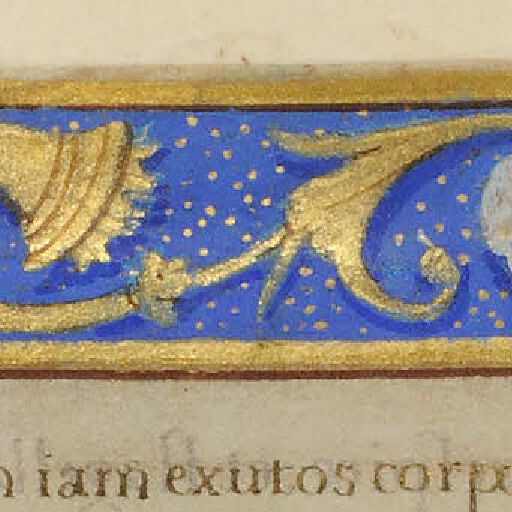 n iam exutos corpo